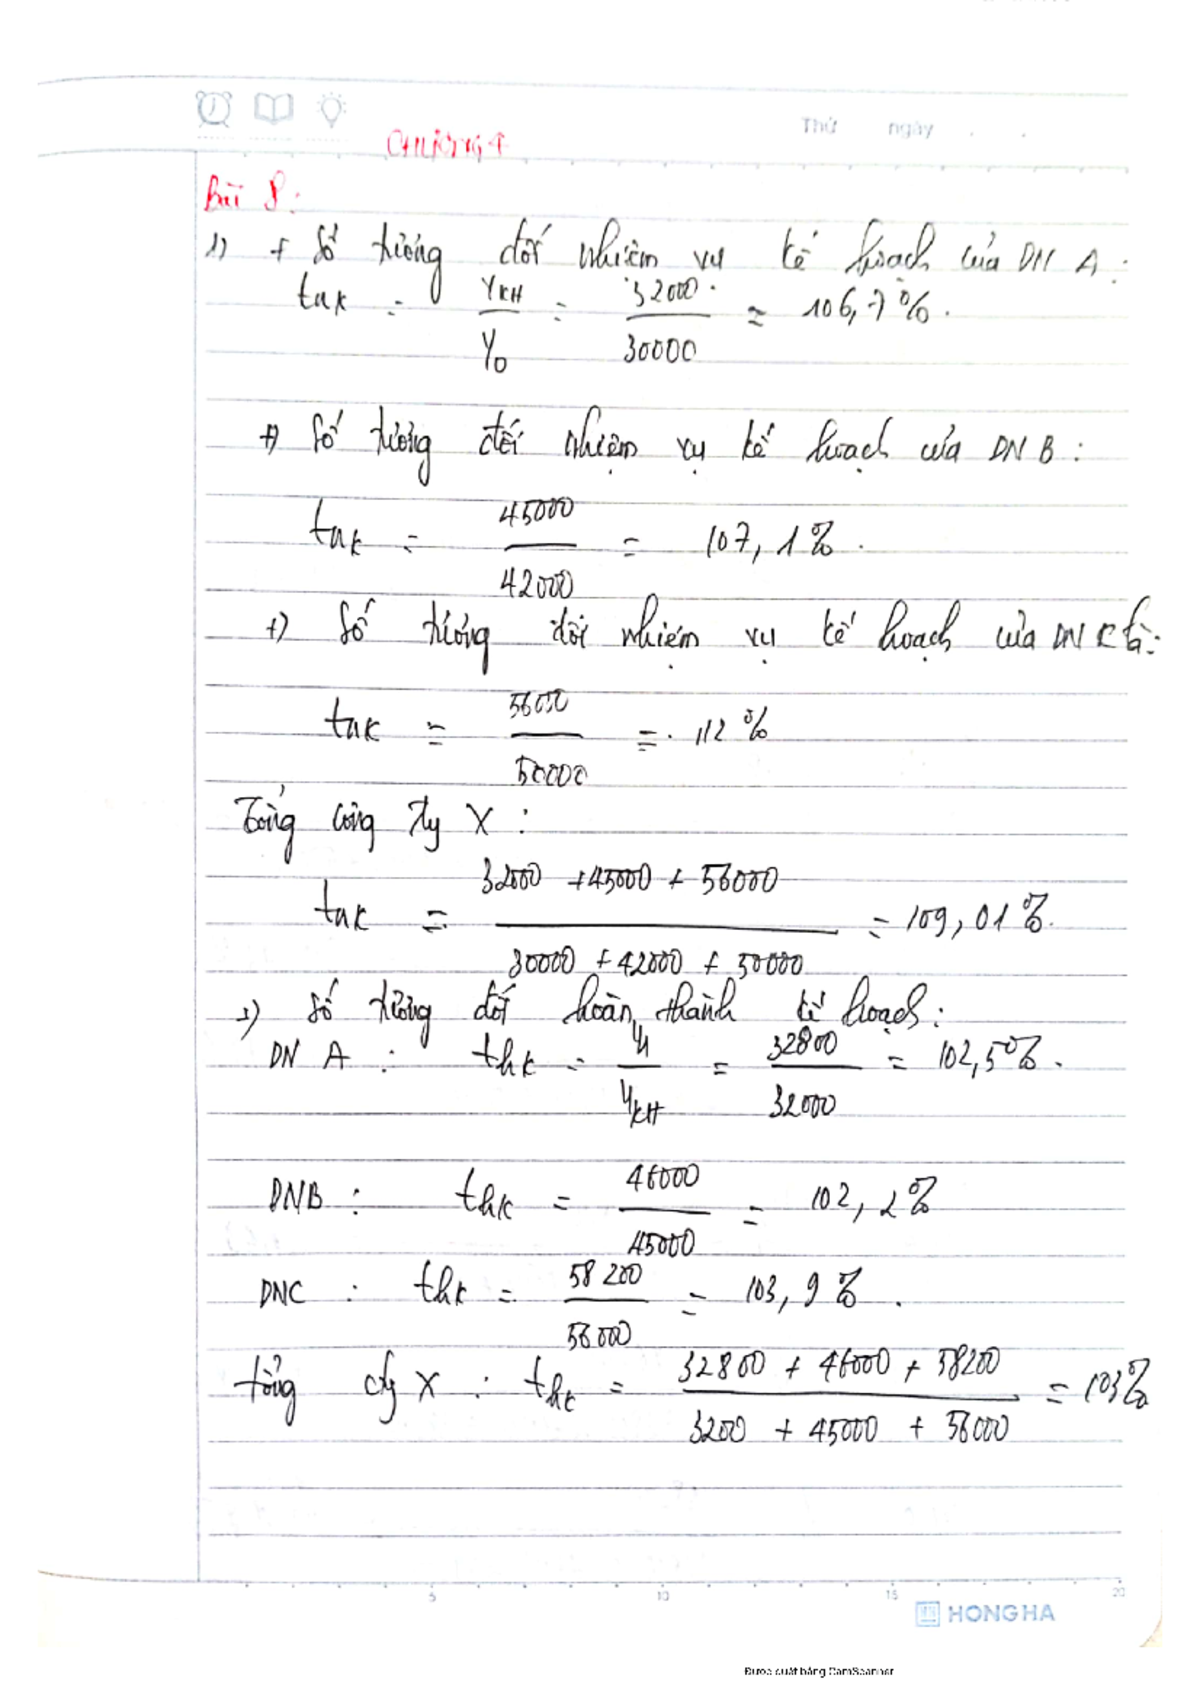 Thứ ngày . .
CHƯƠNG 4
Bài 8:
1) + Số tương đối nhiệm vụ kế hoạch của DN A:
tnk = YKH / Y0 = 32000 / 30000 ≈ 106,7%.
+) Số tương đối nhiệm vụ kế hoạch của DN B:
tnk = 45000 / 42000 = 107,1%.
+) Số tương đối nhiệm vụ kế hoạch của DN C là:
tnk = 56000 / 50000 = 112%
Tổng công ty X:
tnk = 32000 + 45000 + 56000 / 30000 + 42000 + 50000 = 109,01%.
+) Số tương đối hoàn thành kế hoạch:
DN A: thk = Y1 / YKH = 32800 / 32000 = 102,5%.
DNB: thk = 46000 / 45000 = 102,2%
DNC: thk = 58200 / 56000 = 103,9%.
tổng cty X: thk = 32800 + 46000 + 58200 / 3200 + 45000 + 56000 = 103%
5 10 15 20
HONG HA
Được quét bằng CamScanner